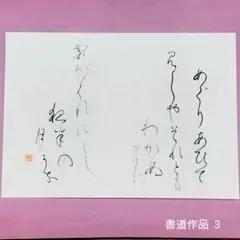 めぐりあひて
見しやそれとも
わかぬ
間に
雲がくれにし
夜半の
月かな
書道作品 3